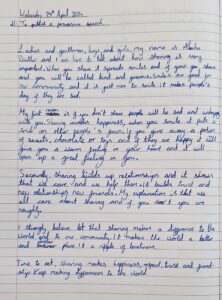 Wednesday 24th April 2024
LI: To publish a persuasive speech.
Ladies and gentlemen, boys and girls, my name is
Butler and I am here to talk about how sharing is very
important. When you share it spreads smiles and if your you share
and you will be called kind and generous. Smiles are good for
our community and it is just nice to smile it makes people's
day if they are sad.
My first is if you don't share people will be sad and unhappy
with you. Sharing makes happiness, when you smile it puts a
smile on other people's faces. If you give away a packet
of sweets, chocolate or toys and if they are happy it will
give you a warm feeling in your heart and it will
open up a great feeling in you.
Secondly, sharing builds up relationships and it shows
that we care and we help them. It builds trust and
new relationships new friends. My explanation is that we
all care about sharing and if you don't you are
naughty.
I strongly believe that sharing makes a difference to the
world and to our community. It makes the world a better
place it a ripple of kindness.
Time to act, sharing makes happiness, repeat, trust and friend-
ship. Keep making happiness to the world